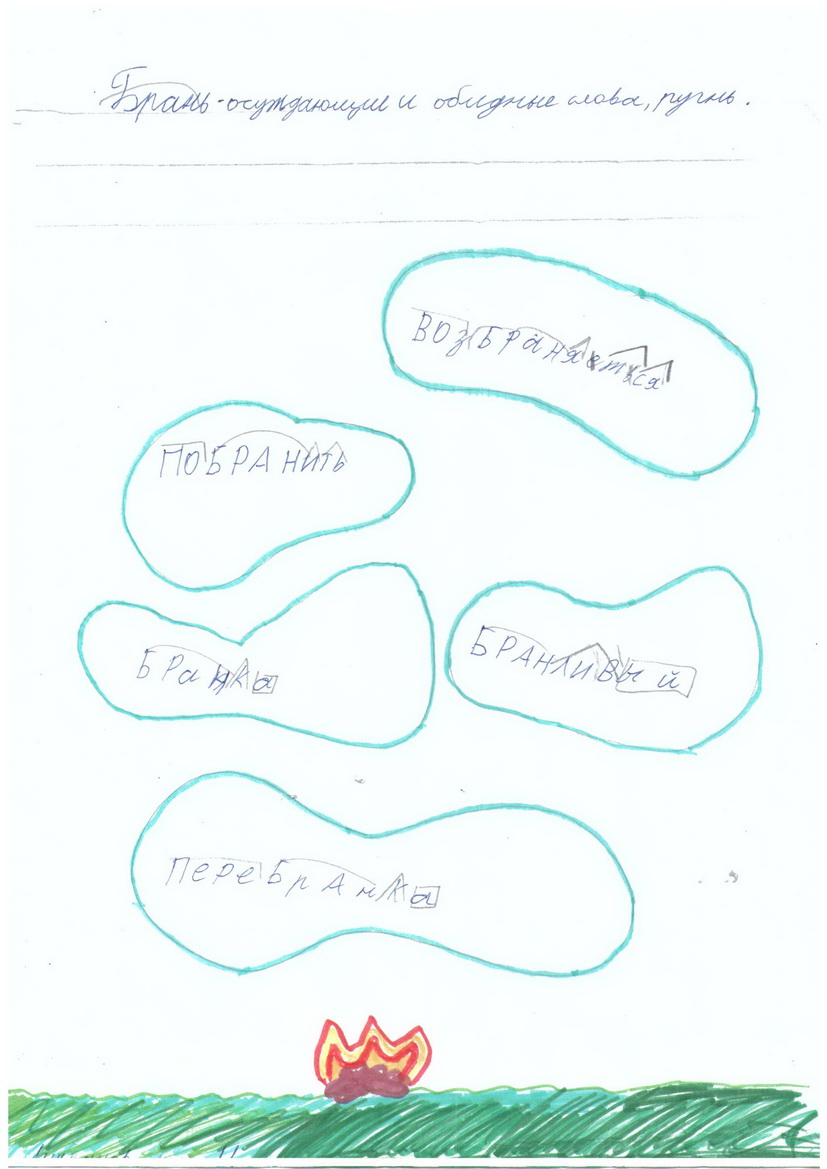 Брань - осуждающие и обидные слова, ругнь.
ВОзБРаняется
ПОБРАНИТЬ
БРанка
БРАНЛИВый
ПереБрАнКа